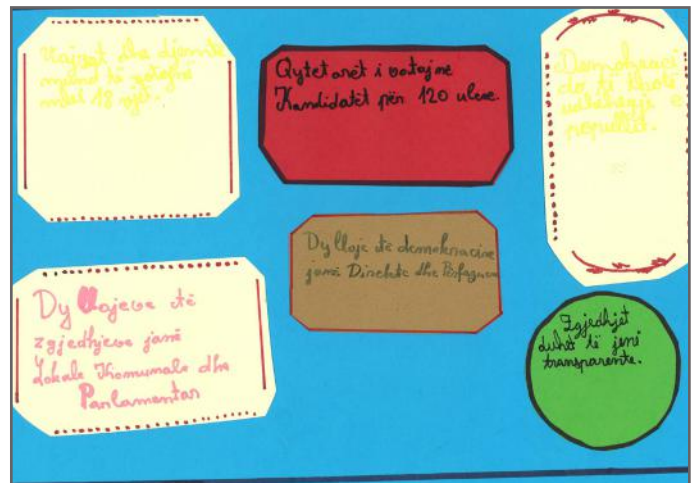 Vajzat dhe djemtë
mund të votojnë
mbi 18 vjet.
Qytetarët i votojnë
Kandidatët për 120 ulëse.
Demokraci
do të thotë
udhëheqje e
popullit.
Dy lloje të demokracinë
janë Direkte dhe Përfaqsu
Dy llojeve të
zgjedhjeve janë
Lokale Komunale dhe
Parlamentar
Zgjedhjet
duhet të jenë
transparente.